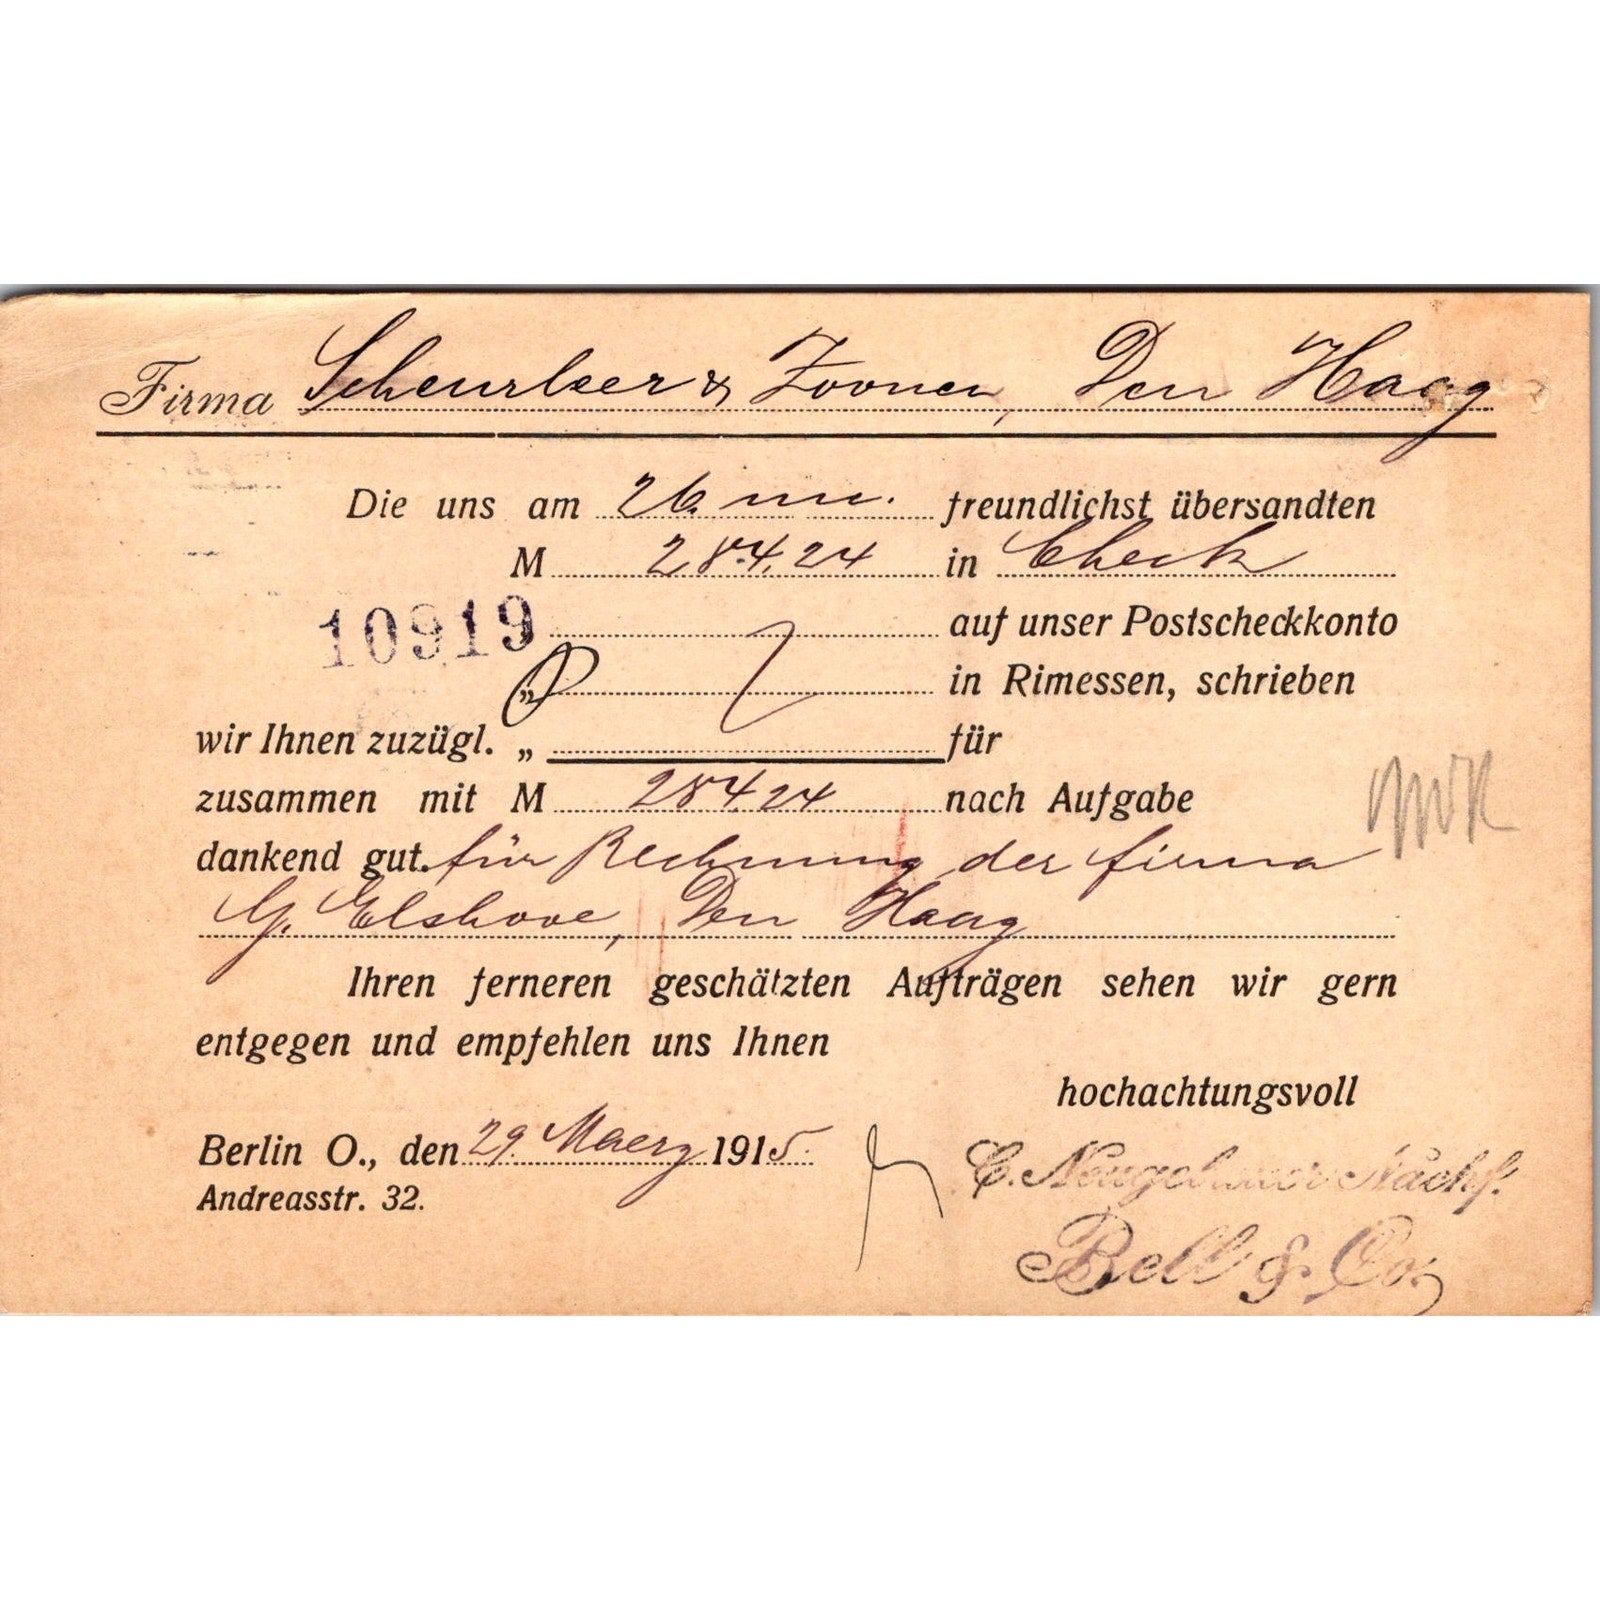 Firma Scheurleer & Zoonen, Den Haag
Die uns am 26. m. freundlichst übersandten
M 284.24 in Check
10919 auf unser Postscheckkonto
„ in Rimessen, schrieben
wir Ihnen zuzügl. „ für
zusammen mit M 284 24 nach Aufgabe
dankend gut. für Rechnung der Firma
G. Elshove, Den Haag
Ihren ferneren geschätzten Aufträgen sehen wir gern
entgegen und empfehlen uns Ihnen
hochachtungsvoll
Berlin O., den 29. Maerz 1915.
Andreasstr. 32.
C. Neugebauer Nachf.
Bell & Co.